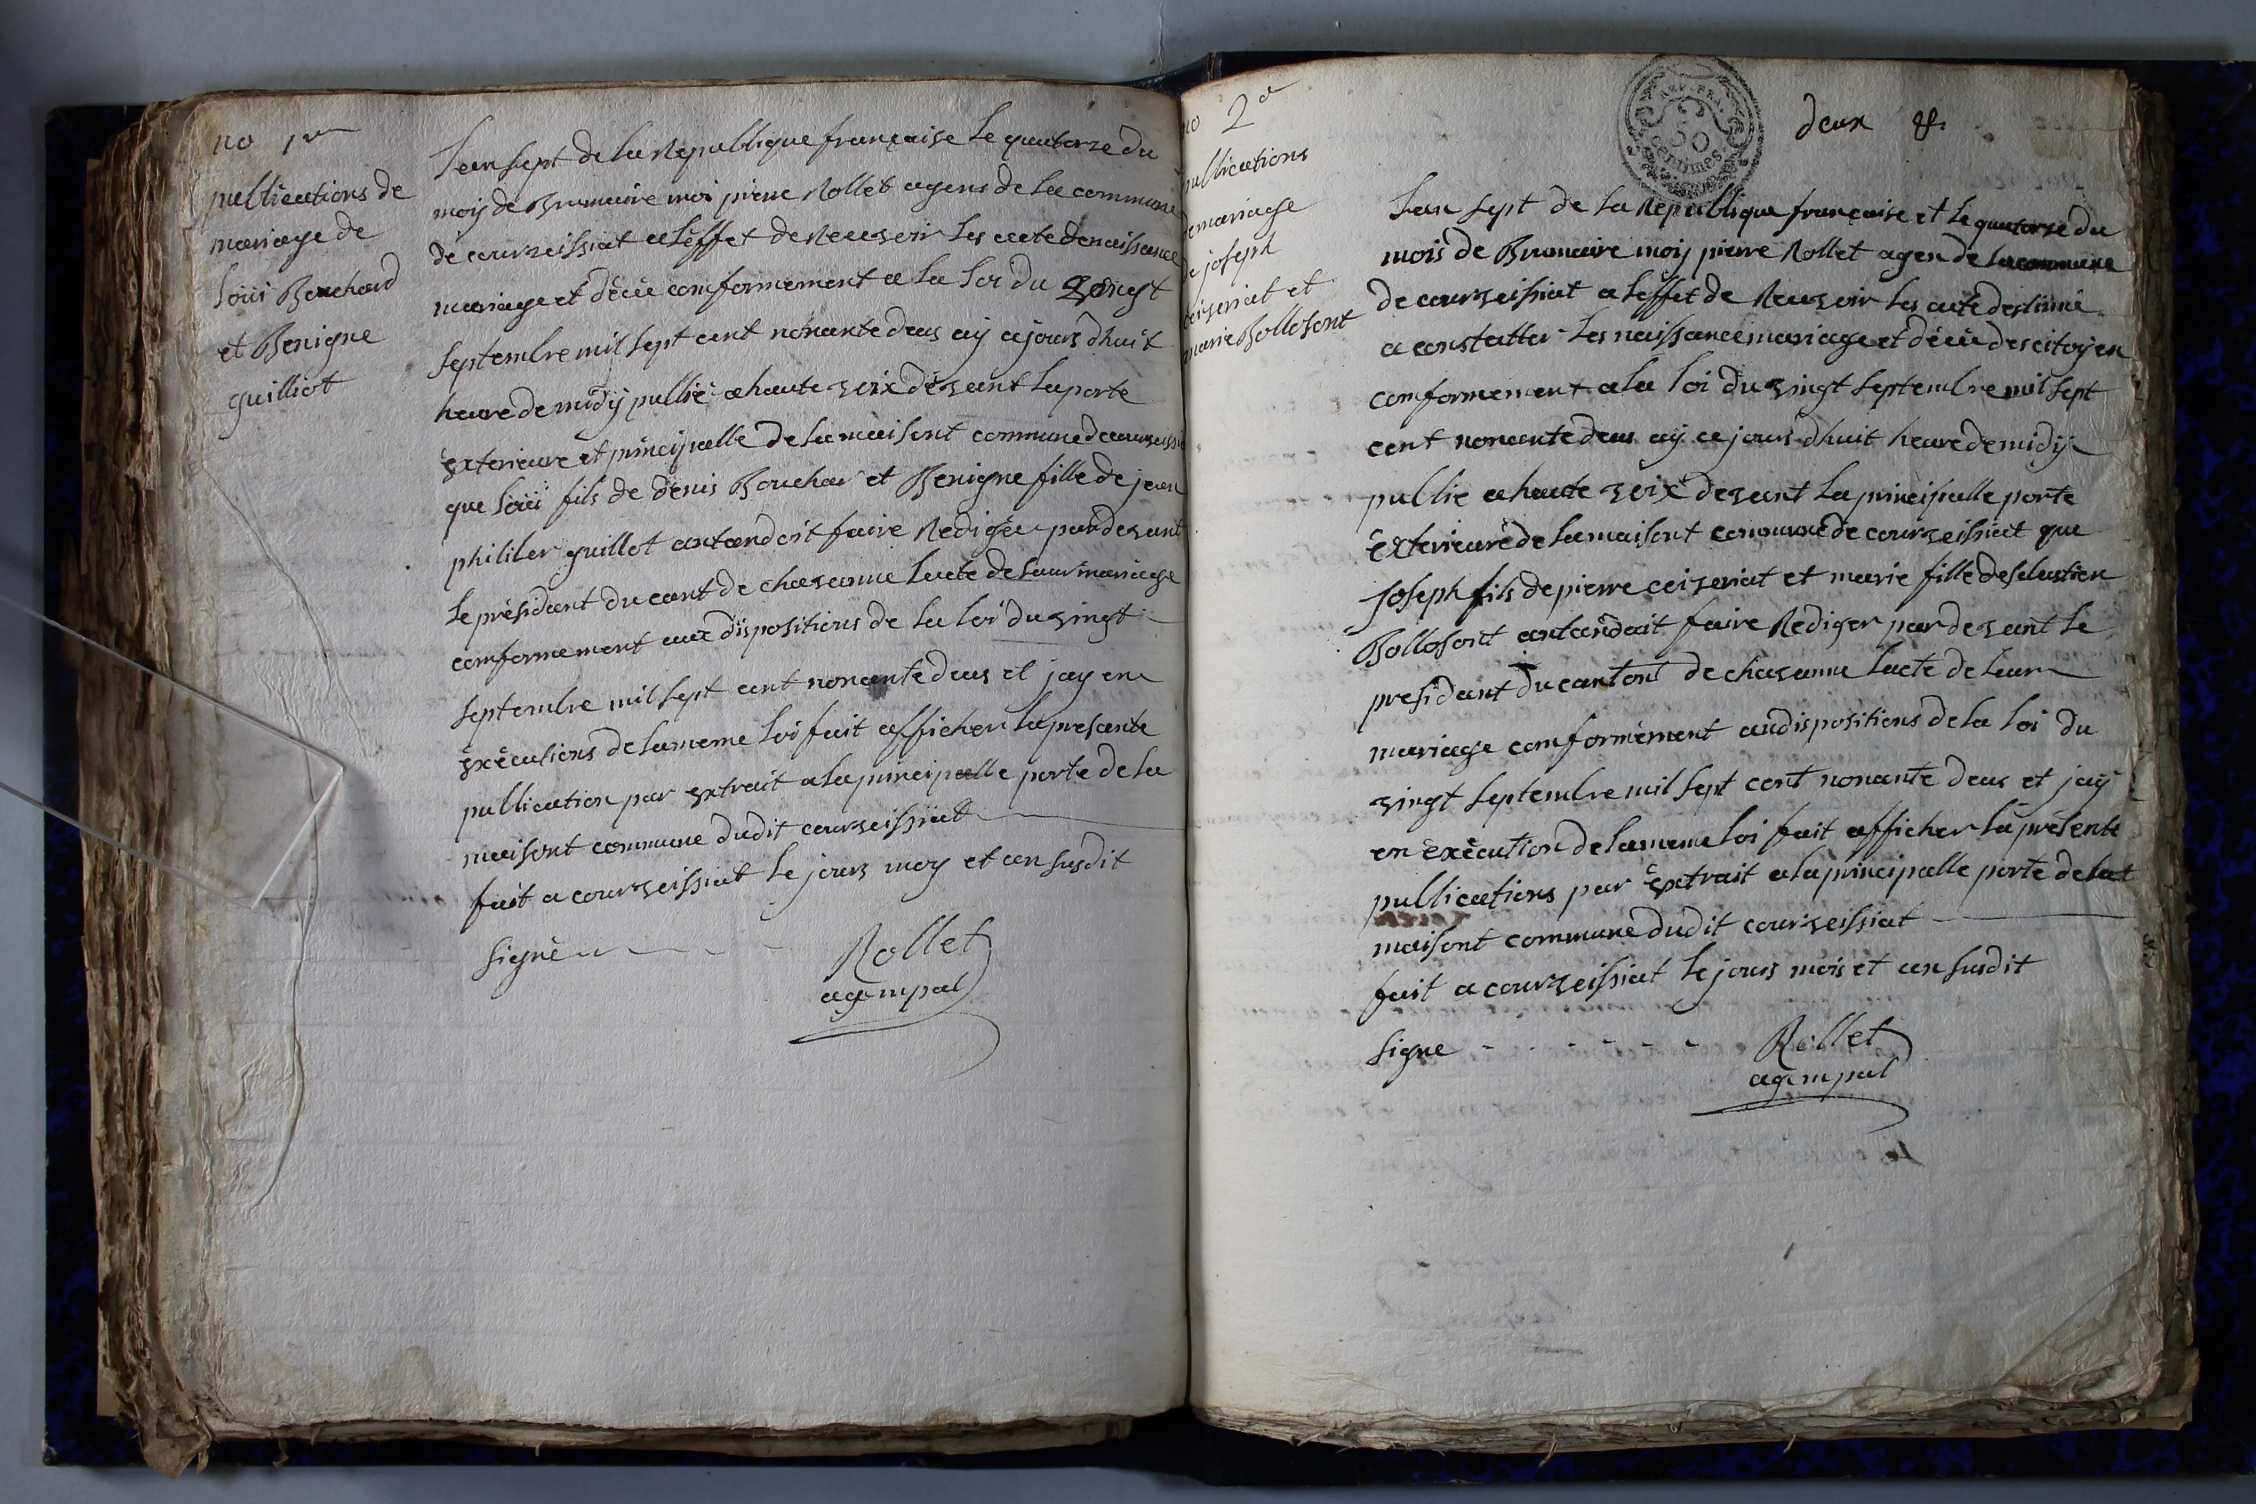 no 1er
publications de
mariage de
loüi Bouchard
et Benigne
guilliot
Lan sept de la Republique française le quatorze du
moy de Brumaire moi pierre Rollet agens de la commune
de courveissiat a leffet de Recevoir les acte de naissance
mariage et décée comformement a la loi du vingt
septembre mil sept cent nonante deus aÿ ajours dhuit
heure de midÿ publié a haute voix devant la porte
exterieure et principalle de la maisont commune dcourveissi
que loüi fils de denis Bouchar et Benigne fille de jean
philiber guillot antandoit faire Redigée pardevant
le présidant du cant de chavanne lacte de leur mariage
comformement aux dispositions de la loi du vingt
septembre mil sept cent nonante deus et jay en
exécutions de la meme loi fait afficher la presante
publication par extrait a la principalle porte de la
maisont commune dudit courveissiat
fait a courveissiat le jours moy et an susdit
signé
Rollet
agempal
no 2e
publications
de mariage
de joseph
ceiseriat et
marie Bollosont
REP. FRA.
50
centimes
deux
Lan sept de la Republique française et le quatorze du
mois de Brumaire moij pierre Rollet agen de la commune
de courveissiat a leffet de Recevoir les acte destiné
a constatter les naissance mariage et décée des citoyen
comformement a la loi du vingt septembre mil sept
cent nonante deus aÿ ce jours dhuit heure de midÿ
publie a haute voix devant la principalle porte
exterieure de la maisont commune de courveissiat que
joseph fils de pierre ceizeriat et marie fille de sebastien
Bollosont antandait faire Rediger par devant le
presidant du cantont de chavanne lacte de leur
mariage comformement au dispositions de la loi du
vingt septembre mil sept cent nonante deus et jaÿ
en exécution de la meme loi fait afficher la présente
publications par extrait a la principalle porte de la
maisont commune dudit courveissiat
fait a courveissiat le jours mois et an susdit
signe
Rollet
agempal